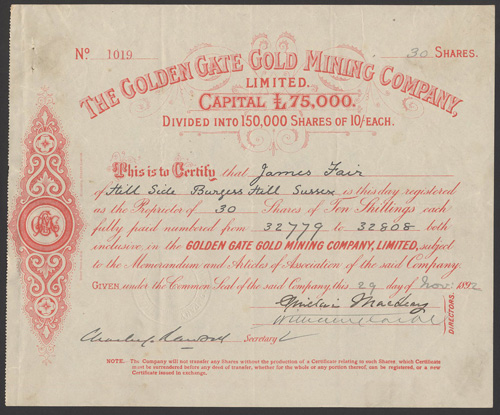 No. 1019 30 SHARES.
THE GOLDEN GATE GOLD MINING COMPANY,
LIMITED.
CAPITAL £75,000.
DIVIDED INTO 150,000 SHARES OF 10/- EACH.
This is to Certify that James Fair
of Hill Side Burgess Hill Sussex is this day registered
as the Proprietor of 30 Shares of Ten Shillings each
fully paid numbered from 32779 to 32808 both
inclusive, in the GOLDEN GATE GOLD MINING COMPANY, LIMITED, subject
to the Memorandum and Articles of Association of the said Company.
GIVEN under the Common Seal of the said Company, this 29 day of Nov: 1892
DIRECTORS.
Secretary
NOTE. The Company will not transfer any Shares without the production of a Certificate relating to such Shares, which Certificate
must be surrendered before any deed of transfer, whether for the whole or any portion thereof, can be registered, or a new
Certificate issued in exchange.